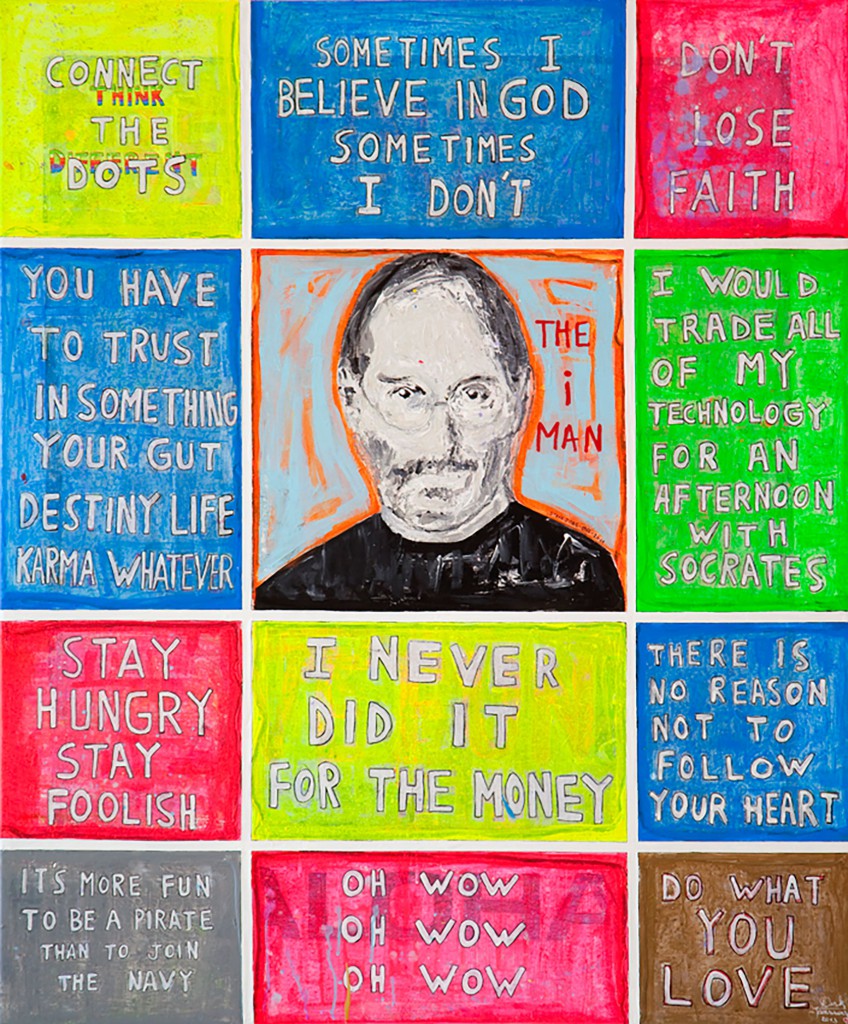 CONNECT
THINK
THE
DIFFERENT
DOTS
SOMETIMES I
BELIEVE IN GOD
SOMETIMES
I DON'T
DON'T
LOSE
FAITH
YOU HAVE
TO TRUST
IN SOMETHING
YOUR GUT
DESTINY LIFE
KARMA WHATEVER
THE
i
MAN
I WOULD
TRADE ALL
OF MY
TECHNOLOGY
FOR AN
AFTERNOON
WITH
SOCRATES
STAY
HUNGRY
STAY
FOOLISH
I NEVER
DID IT
FOR THE MONEY
THERE IS
NO REASON
NOT TO
FOLLOW
YOUR HEART
IT'S MORE FUN
TO BE A PIRATE
THAN TO JOIN
THE NAVY
OH WOW
OH WOW
OH WOW
DO WHAT
YOU
LOVE